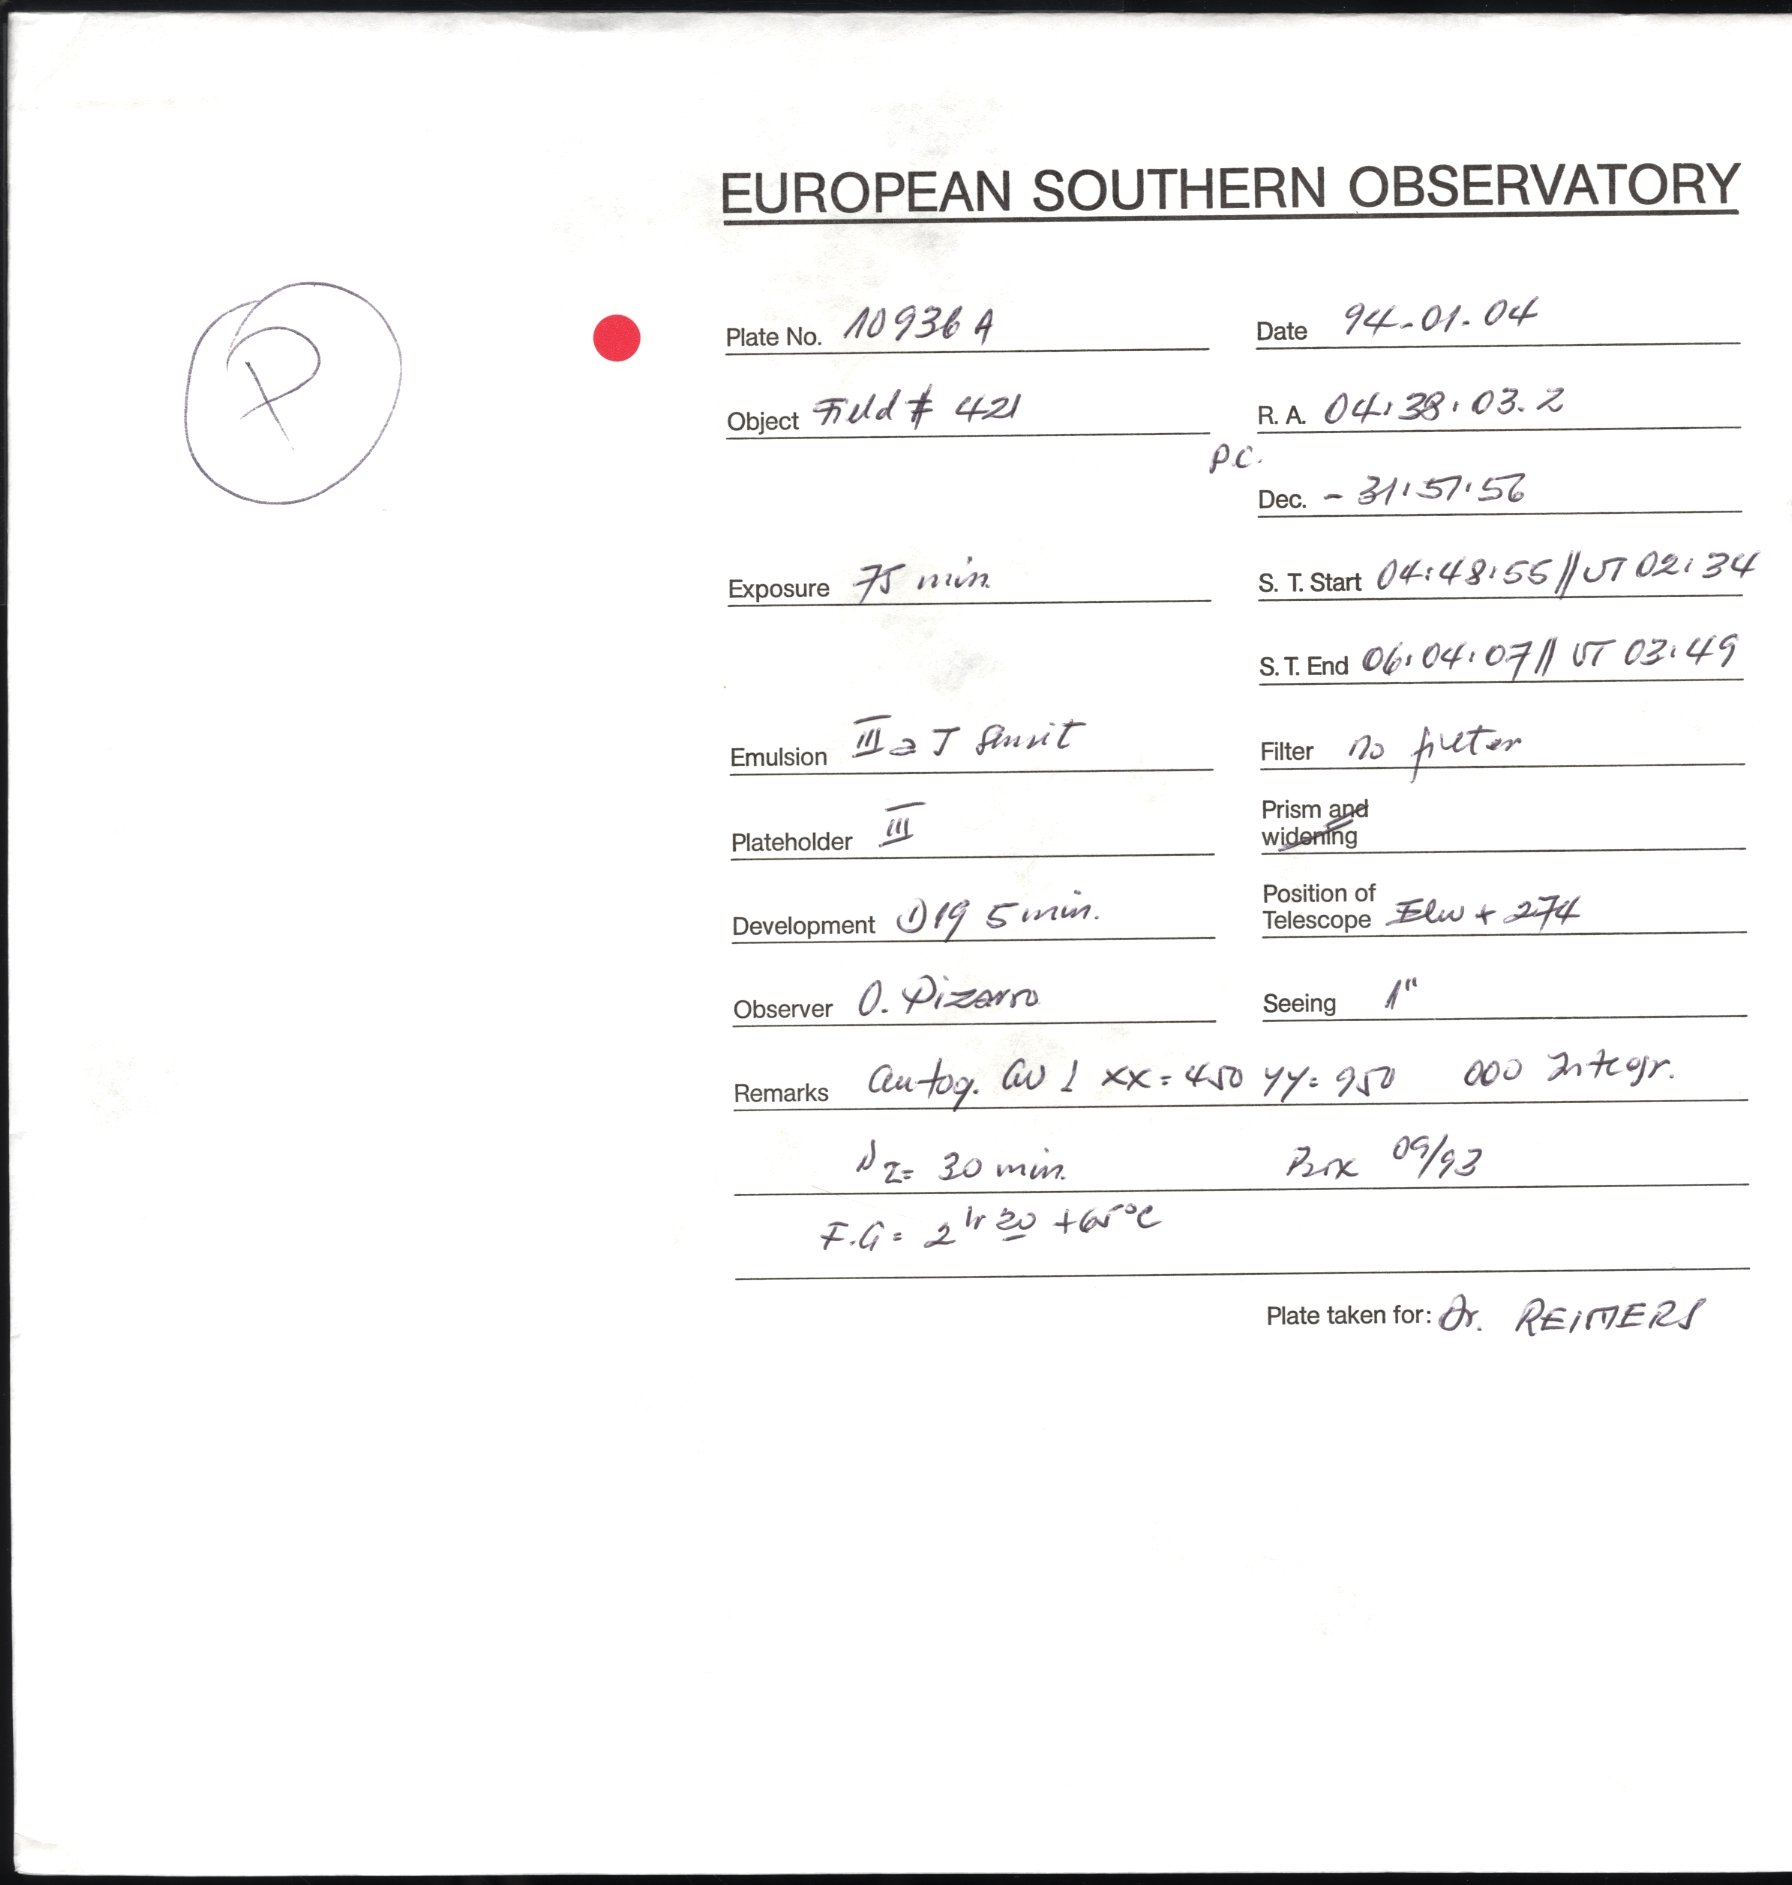 EUROPEAN SOUTHERN OBSERVATORY
P
Plate No. 10936 A Date 94-01-04
Object Field # 421 R. A. 04:38:03.2
P.C.
Dec. - 31:57:56
Exposure 75 min. S. T. Start 04:48:55 // UT 02:34
S. T. End 06:04:07 // UT 03:49
Emulsion III a J Filter no filter
Plateholder III Prism and
widening
Development D19 5 min. Position of
Telescope + 274
Observer O. Pizarro Seeing 1"
Remarks autog. xx = 450 yy = 950 000 Integr.
N2= 30 min. Box 09/93
F.G = 2 hr 30 +65°C
Plate taken for: Dr. REIMERS